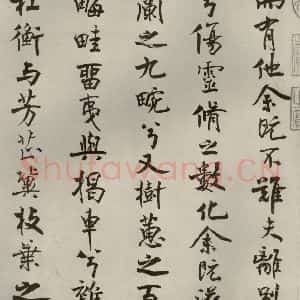 而有他余既不難夫離別
兮傷靈脩之數化余既滋
蘭之九畹兮又樹蕙之百
畮畦畱夷與揭車兮雜
杜衡与芳芷冀枝葉之
Shufawang.CN